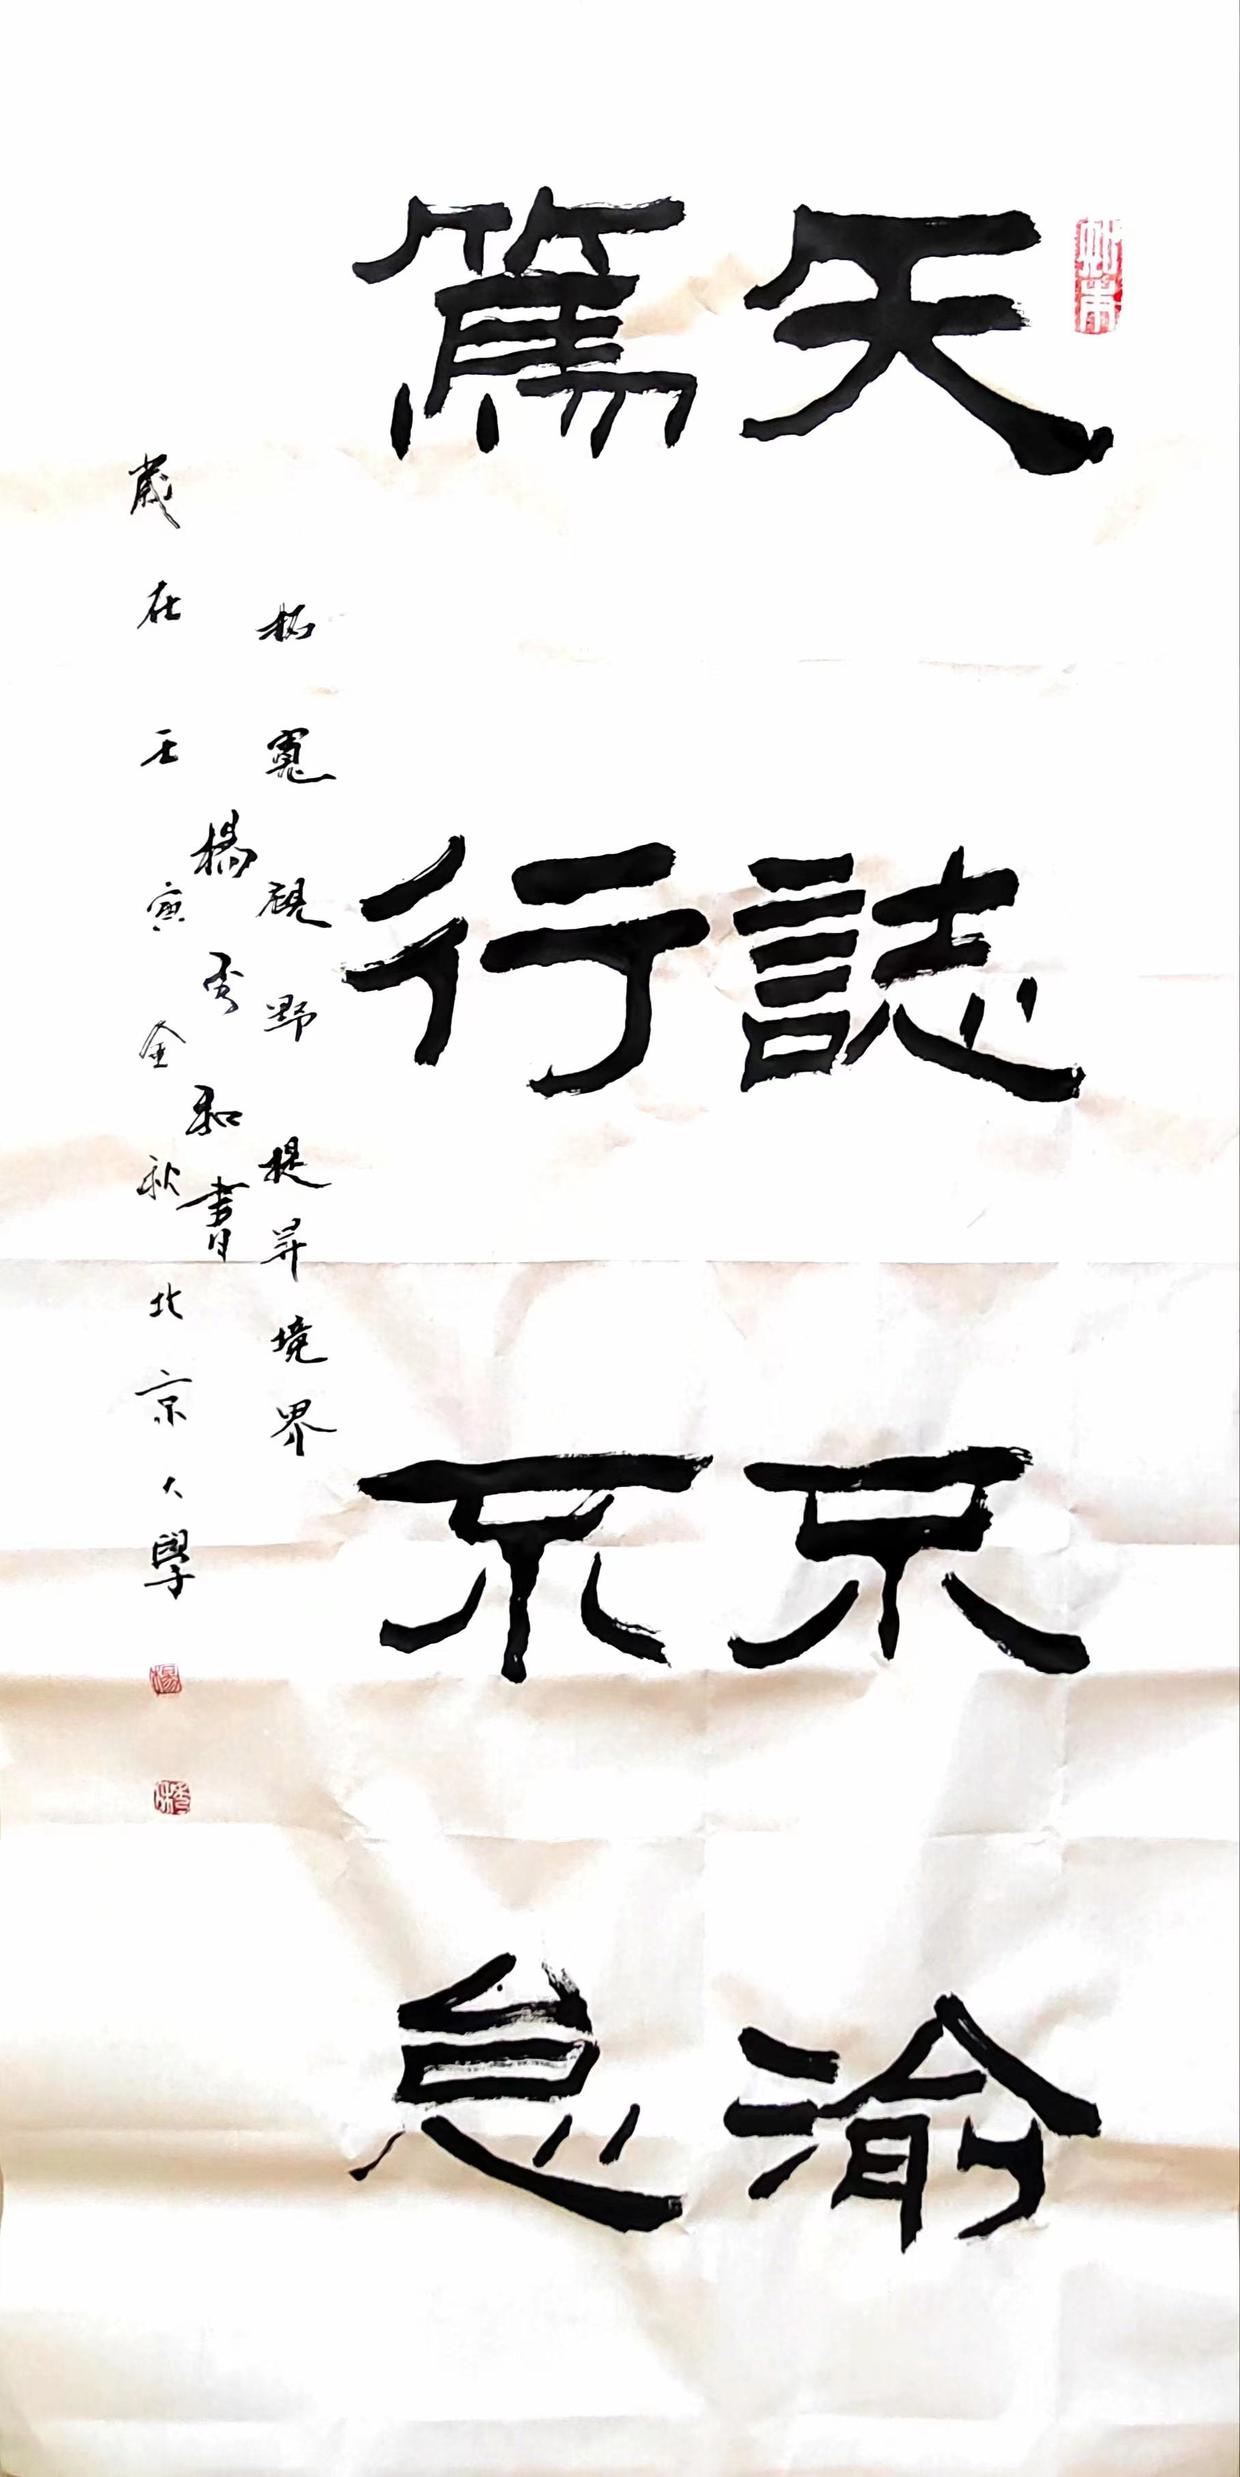 矢誌不渝
篤行不怠
拓寬視野提昇境界
楊秀和書
歲在壬寅金秋北京大學
楊